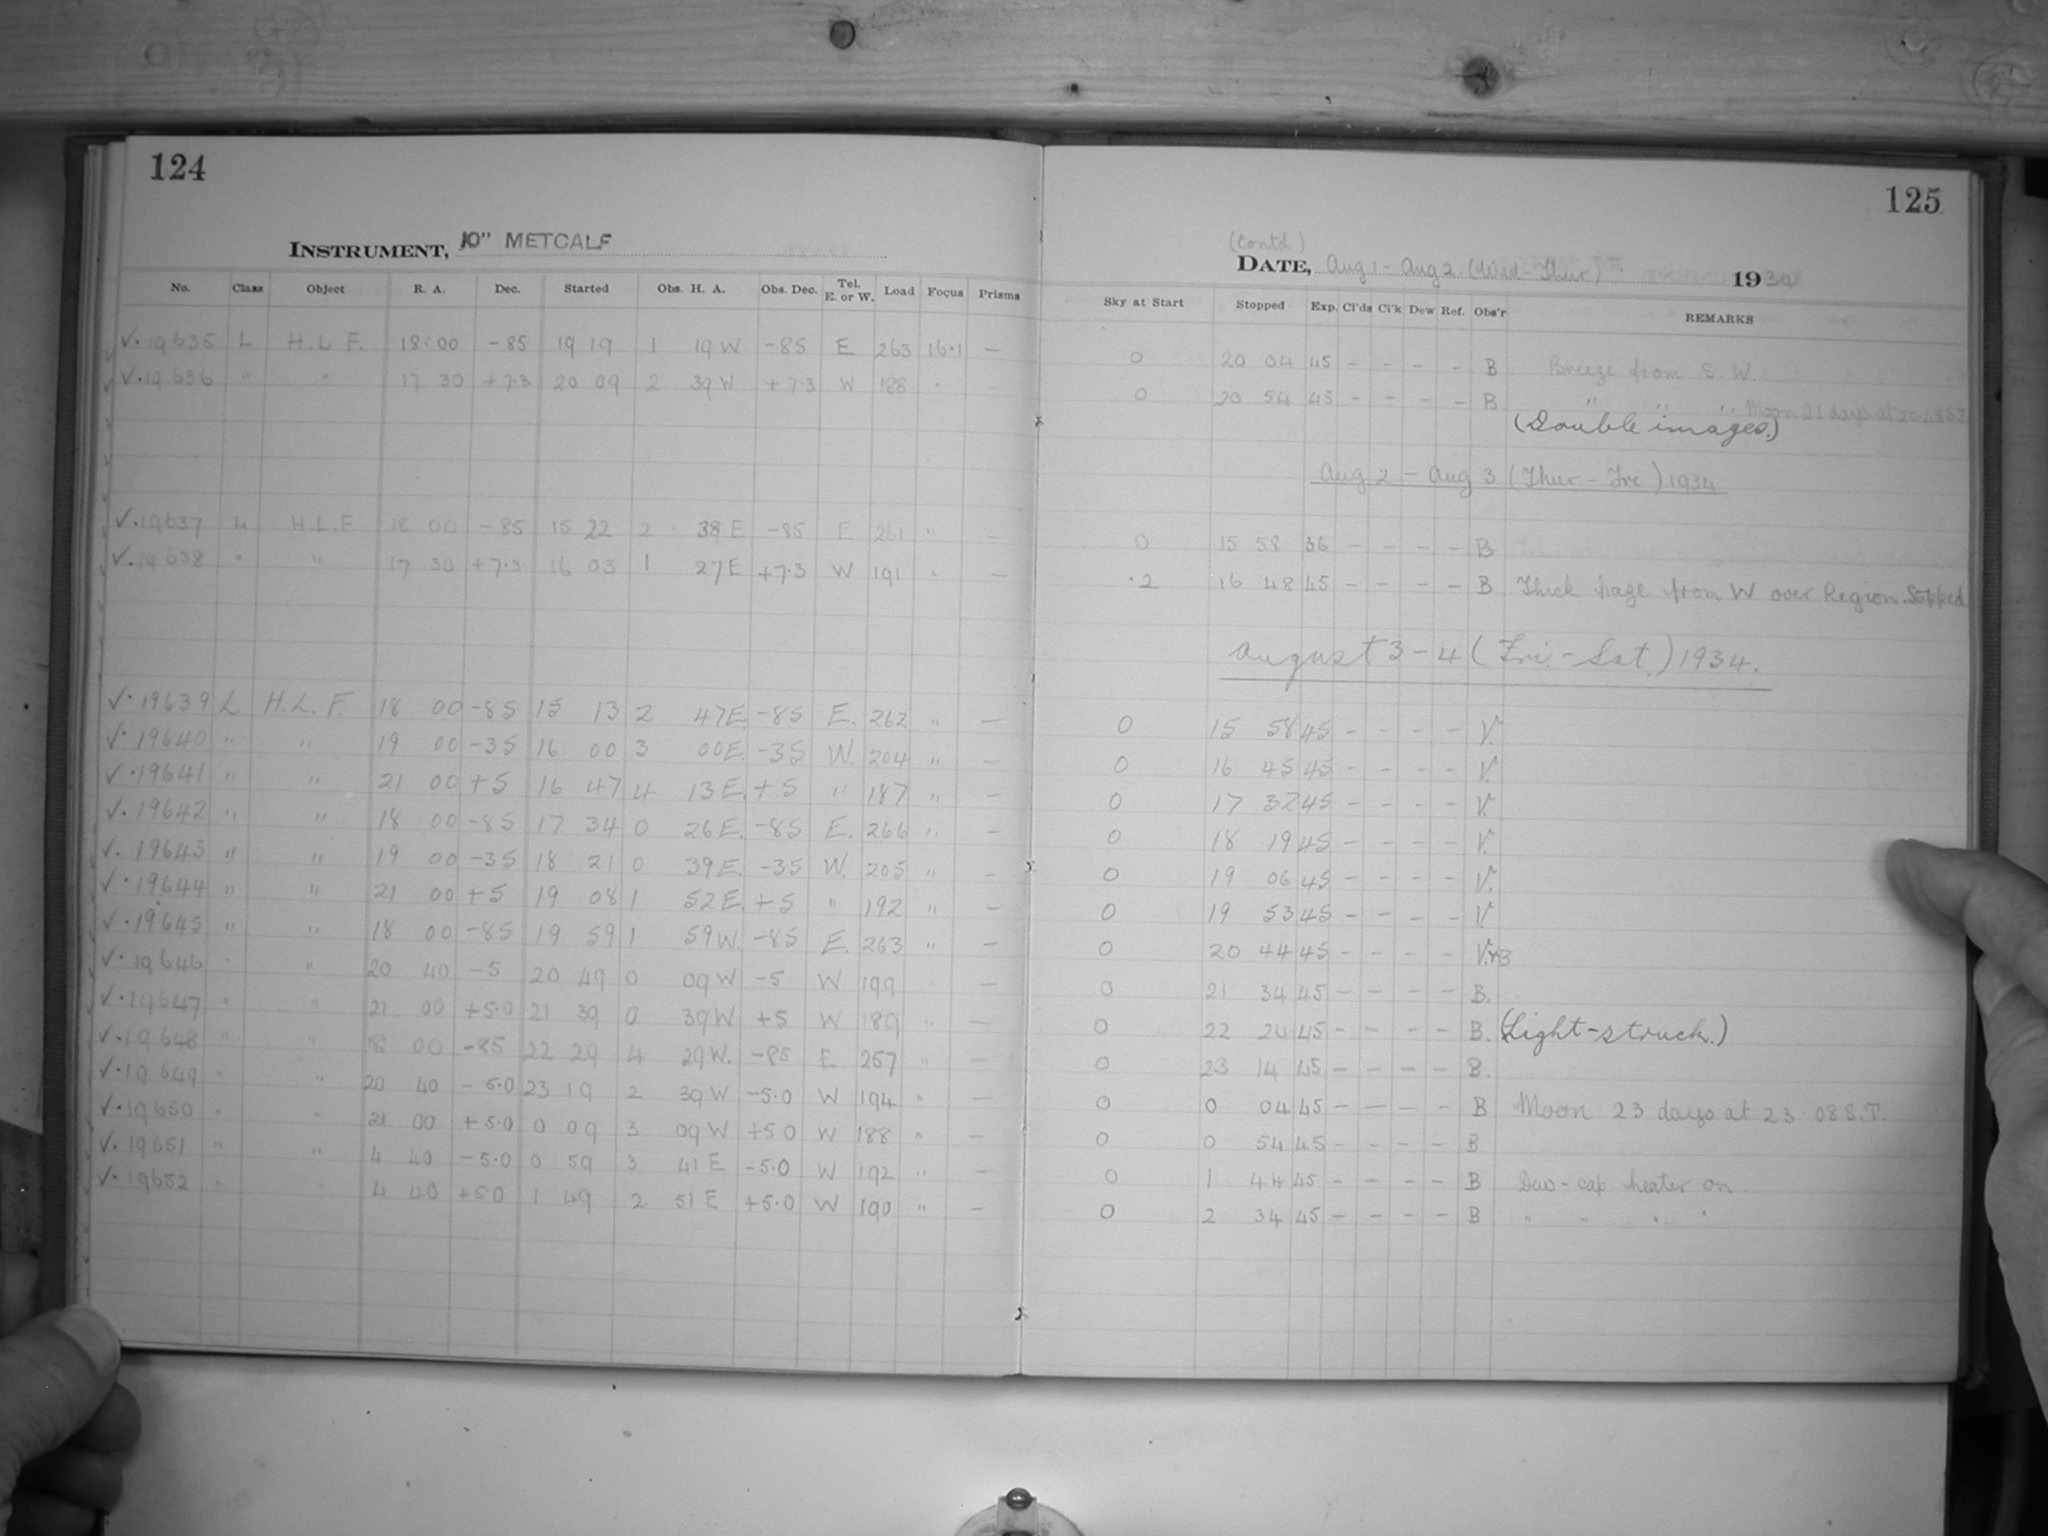 124
INSTRUMENT, 10" METCALF
No. Class Object R. A. Dec. Started Obs. H. A. Obs. Dec. Tel. E. or W. Load Focus Prisms
✓·19635 L H.L.F. 18 00 -85 19 19 1 19 W -85 E 263 16·1 —
✓·19636 " " 17 30 +7·3 20 09 2 39 W +7·3 W 188 " —
✓·19637 L H.L.F 18 00 -85 15 22 2 38 E -85 E 261 " —
✓·19638 " " 17 30 +7·3 16 03 1 27 E +7·3 W 191 " —
✓·19639 L H.L.F. 18 00 -85 15 13 2 47 E. -85 E. 262 " —
✓·19640 " " 19 00 -35 16 00 3 00 E. -35 W. 204 " —
✓·19641 " " 21 00 +5 16 47 4 13 E. +5 " 187 " —
✓·19642 " " 18 00 -85 17 34 0 26 E. -85 E. 266 " —
✓·19643 " " 19 00 -35 18 21 0 39 E. -35 W. 205 " —
✓·19644 " " 21 00 +5 19 08 1 52 E. +5 " 192 " —
✓·19645 " " 18 00 -85 19 59 1 59 W. -85 E. 263 " —
✓·19646 " " 20 40 -5 20 49 0 09 W -5 W 199 " —
✓·19647 " " 21 00 +5·0 21 39 0 39 W +5 W 189 " —
✓·19648 " " 18 00 -85 22 29 4 29 W. -85 E 257 " —
✓·19649 " " 20 40 -5·0 23 19 2 39 W -5·0 W 194 " —
✓·19650 " " 21 00 +5·0 0 09 3 09 W +5·0 W 188 " —
✓·19651 " " 4 40 -5·0 0 59 3 41 E -5·0 W 192 " —
✓·19652 " " 4 40 +5·0 1 49 2 51 E +5·0 W 190 " —
125
(Contd.)
DATE, Aug 1 - Aug 2 (Wed - Thur) 1934
Sky at Start Stopped Exp. Cl'ds Cl'k Dew Ref. Obs'r REMARKS
0 20 04 45 — — — — B Breeze from S.W.
0 20 54 45 — — — — B " " " Moon 21 days at
(Double images.)
Aug 2 - Aug 3 (Thur - Fri) 1934
0 15 58 36 — — — — B
·2 16 48 45 — — — — B Thick haze from W over Region. Stopped
August 3 - 4 (Fri. - Sat.) 1934.
0 15 58 45 — — — — V.
0 16 45 45 — — — — V.
0 17 32 45 — — — — V.
0 18 19 45 — — — — V.
0 19 06 45 — — — — V.
0 19 53 45 — — — — V
0 20 44 45 — — — — V.+B
0 21 34 45 — — — — B.
0 22 24 45 — — — — B. (Light-struck.)
0 23 14 45 — — — — B.
0 0 04 45 — — — — B Moon 23 days at 23·08 S.T.
0 0 54 45 — — — — B
0 1 44 45 — — — — B Dew-cap heater on.
0 2 34 45 — — — — B " " " "